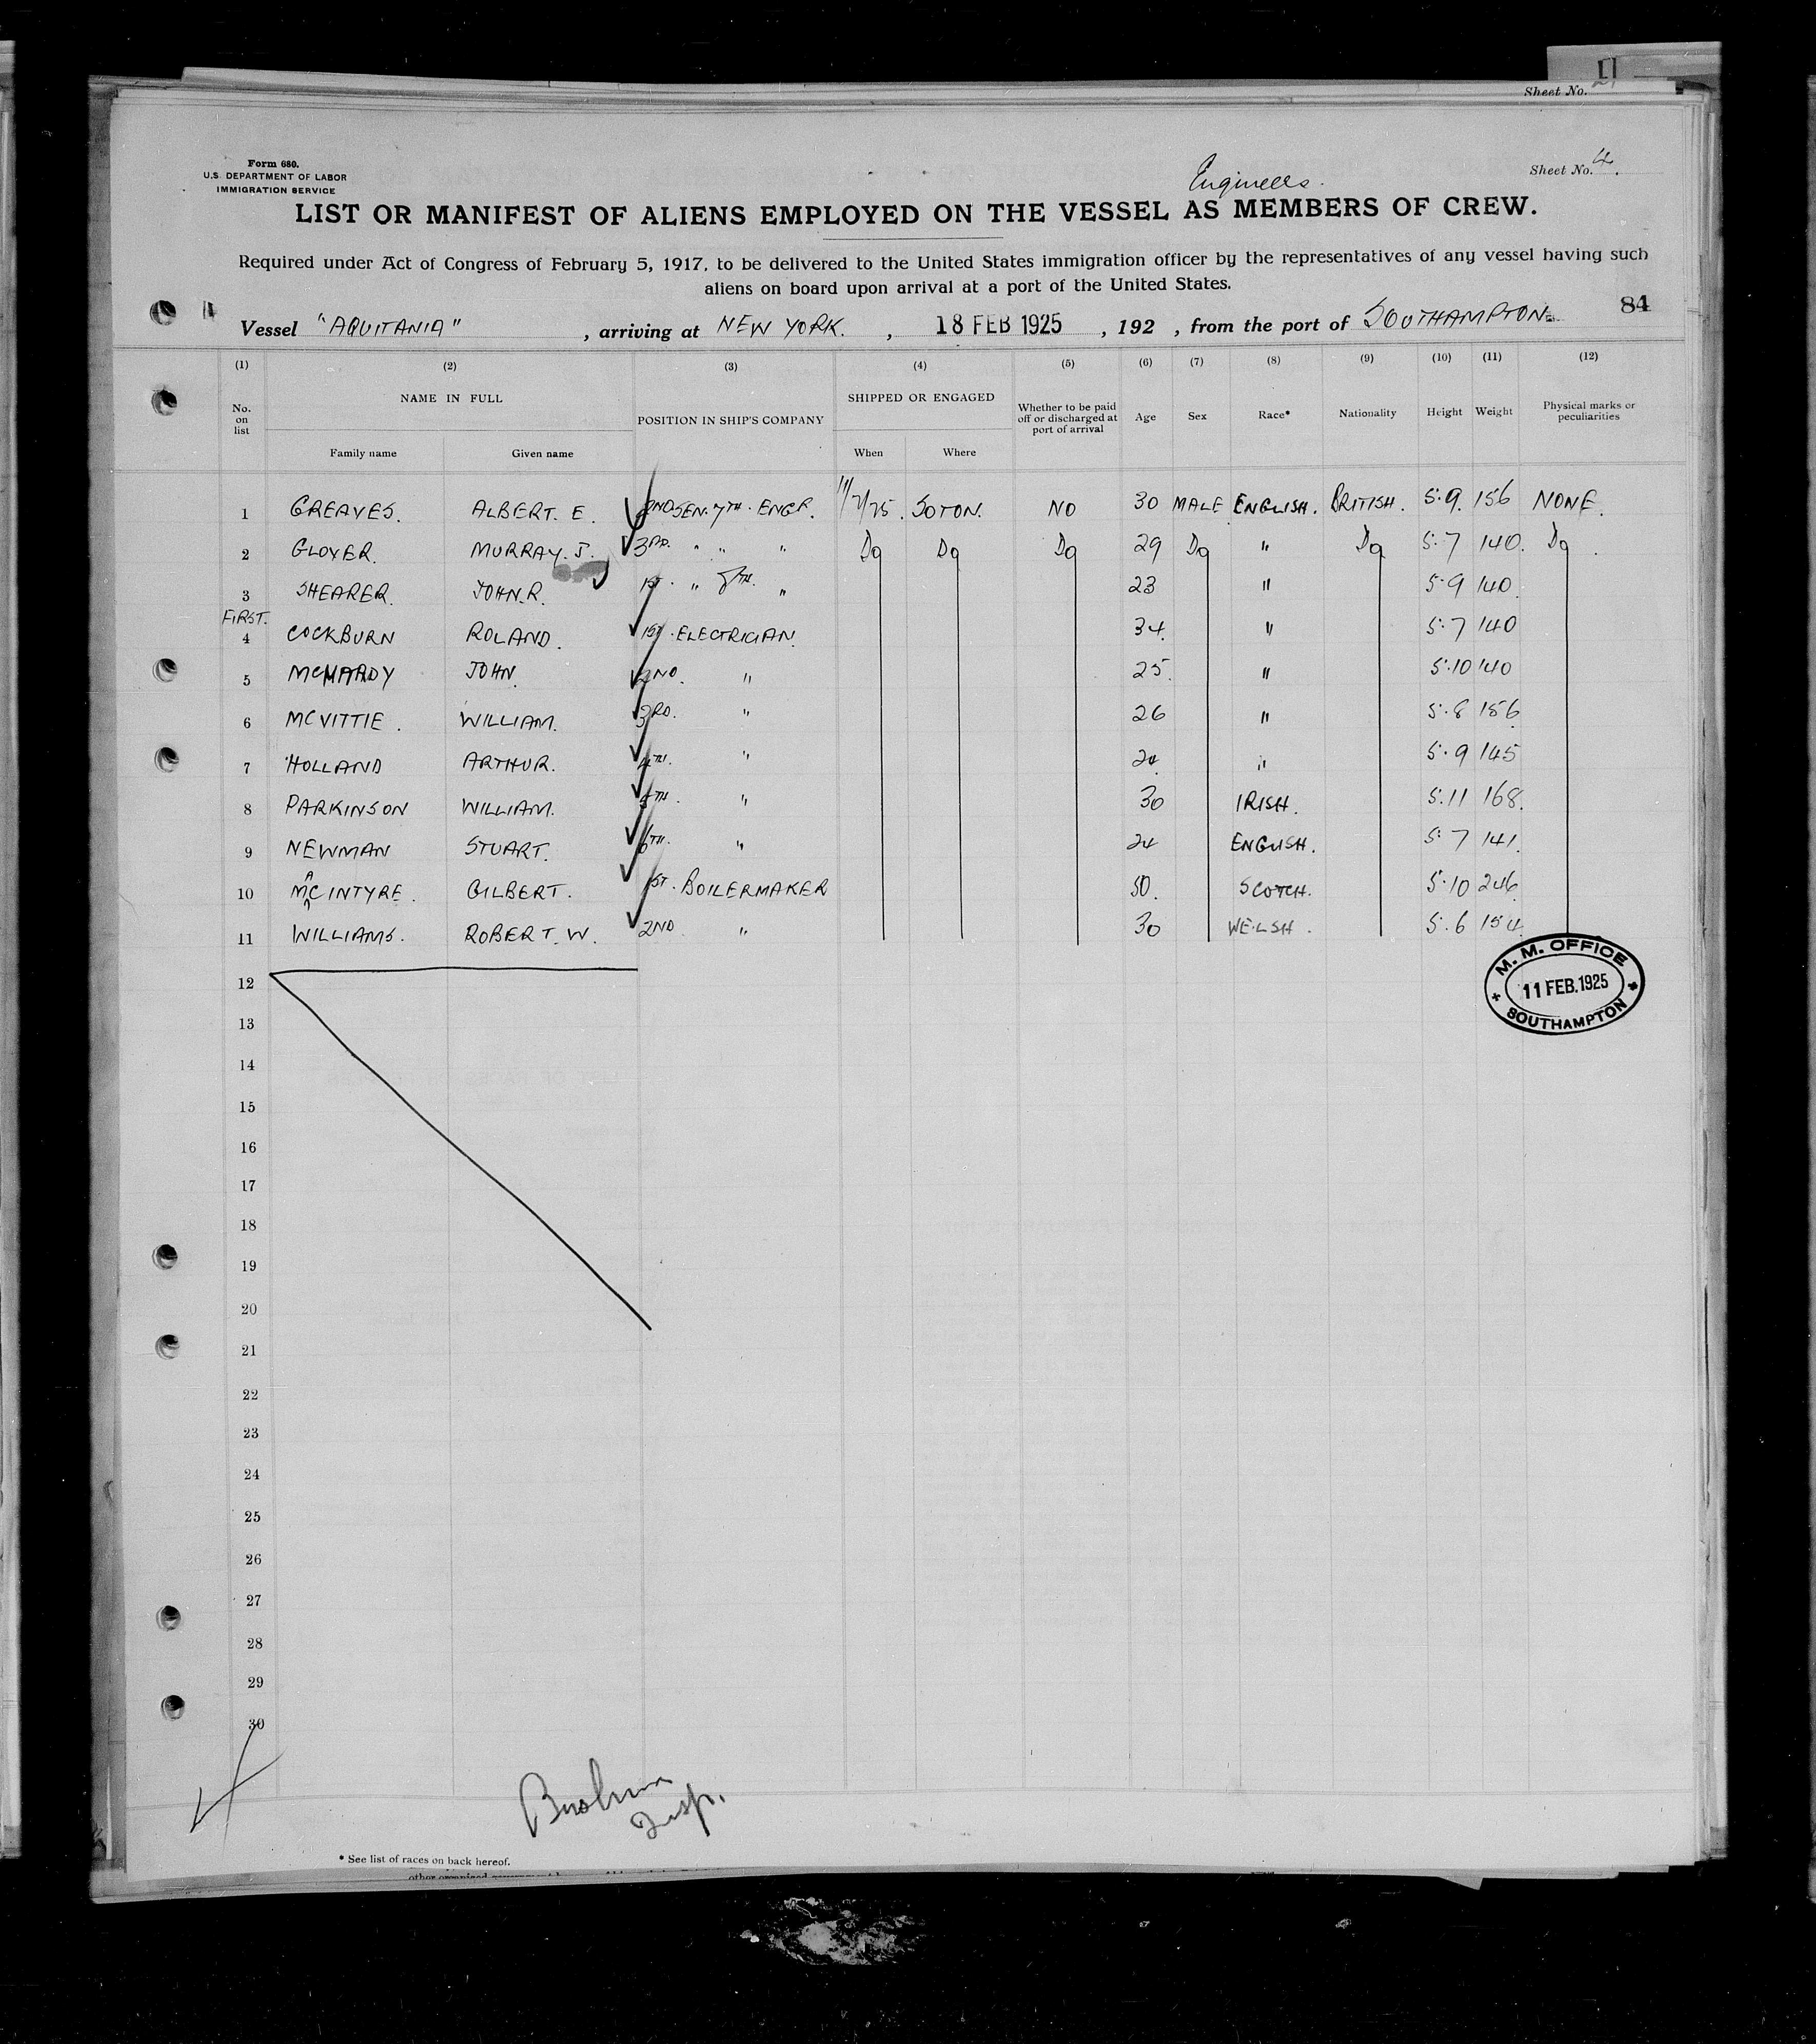 Sheet No.
Form 680.
U.S. DEPARTMENT OF LABOR
IMMIGRATION SERVICE
Engineers.
Sheet No. 4.
LIST OR MANIFEST OF ALIENS EMPLOYED ON THE VESSEL AS MEMBERS OF CREW.
Required under Act of Congress of February 5, 1917, to be delivered to the United States immigration officer by the representatives of any vessel having such
aliens on board upon arrival at a port of the United States.
84
Vessel "AQUITANIA" , arriving at NEW YORK. , 18 FEB 1925 , 192 , from the port of SOUTHAMPTON.
(1) (2) (3) (4) (5) (6) (7) (8) (9) (10) (11) (12)
No. on list NAME IN FULL POSITION IN SHIP'S COMPANY SHIPPED OR ENGAGED Whether to be paid off or discharged at port of arrival Age Sex Race* Nationality Height Weight Physical marks or peculiarities
Family name Given name When Where
1 GREAVES. ALBERT. E. 2ND SEN. 7TH. ENGR. 11/2/25. SOTON. NO 30 MALE ENGLISH. BRITISH. 5.9. 156 NONE.
2 GLOVER. MURRAY. J. 3RD. " " " Do Do Do 29 Do " Do 5.7 140. Do.
3 SHEARER. JOHN. R. 1ST. " 8TH. " 23 " 5.9 140.
FIRST.
4 COCKBURN ROLAND. 1ST. ELECTRICIAN. 34. " 5.7 140
5 MCHARDY JOHN. 2ND. " 25. " 5.10 140
6 MCVITTIE. WILLIAM. 3RD. " 26 " 5.8 156
7 HOLLAND ARTHUR. 4TH. " 24. " 5.9 145
8 PARKINSON WILLIAM. 5TH. " 30 IRISH. 5.11 168.
9 NEWMAN STUART. 6TH. " 24 ENGLISH. 5.7 141.
10 MACINTYRE. GILBERT. 1ST. BOILERMAKER 50. SCOTCH. 5.10 246
11 WILLIAMS. ROBERT. W. 2ND " 30 WELSH. 5.6 154.
M. M. OFFICE
11 FEB. 1925
SOUTHAMPTON
12
13
14
15
16
17
18
19
20
21
22
23
24
25
26
27
28
29
30
Insp.
* See list of races on back hereof.